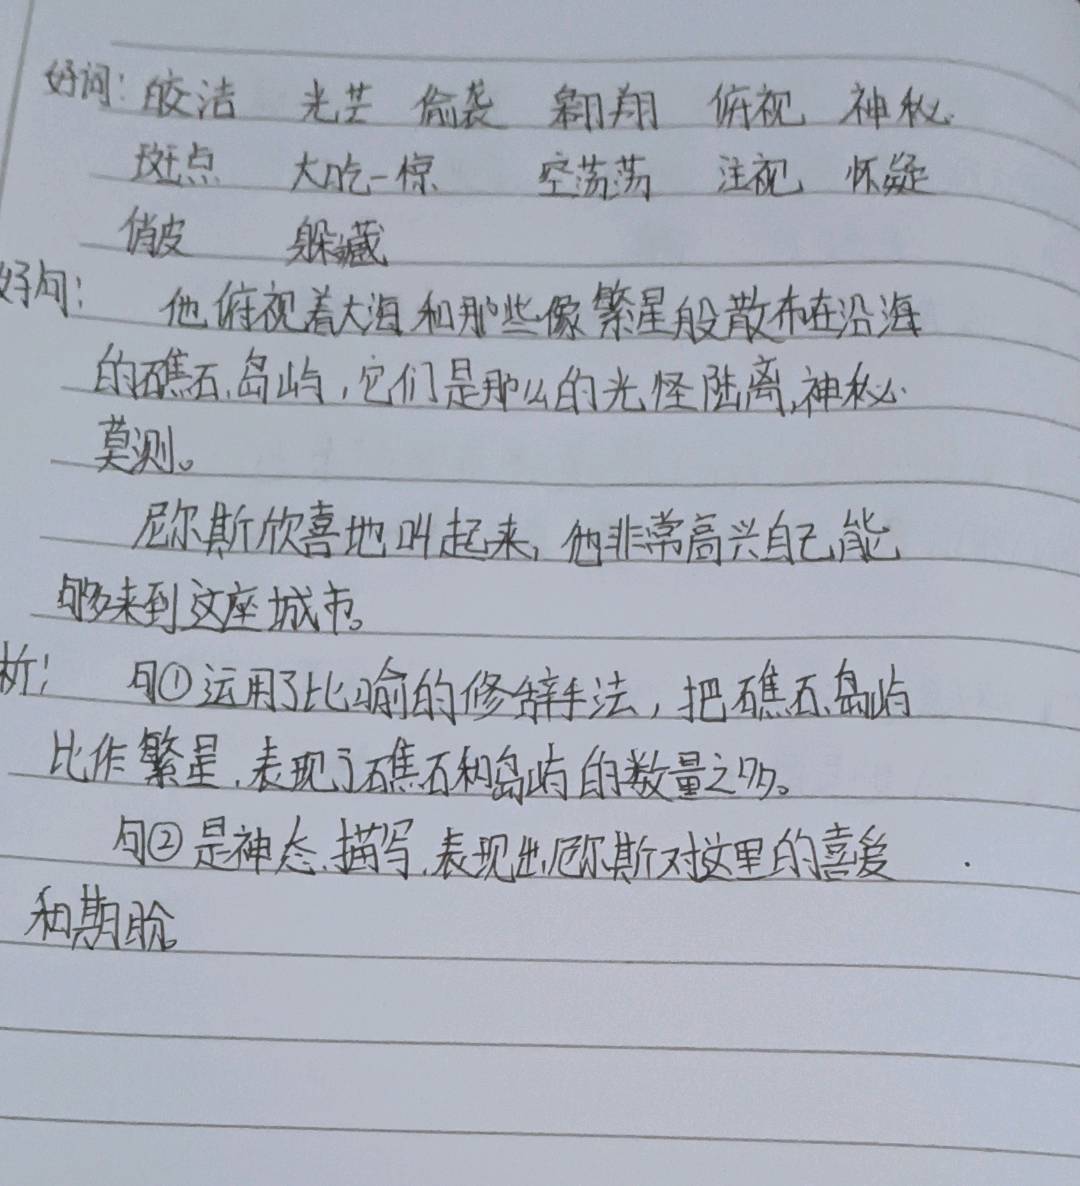 好词：皎洁 光芒 偷袭 翱翔 俯视 神秘
斑点 大吃一惊 空荡荡 注视 怀疑
俏皮 躲藏
好句：他俯视着大海和那些像繁星般散布在沿海
的礁石、岛屿，它们是那么的光怪陆离，神秘
莫测。
尼尔斯欣喜地叫起来，他非常高兴自己能
够来到这座城市。
析：句①运用了比喻的修辞手法，把礁石、岛屿
比作繁星，表现了礁石和岛屿的数量之多。
句②是神态、描写，表现出尼尔斯对这里的喜爱
和期盼。